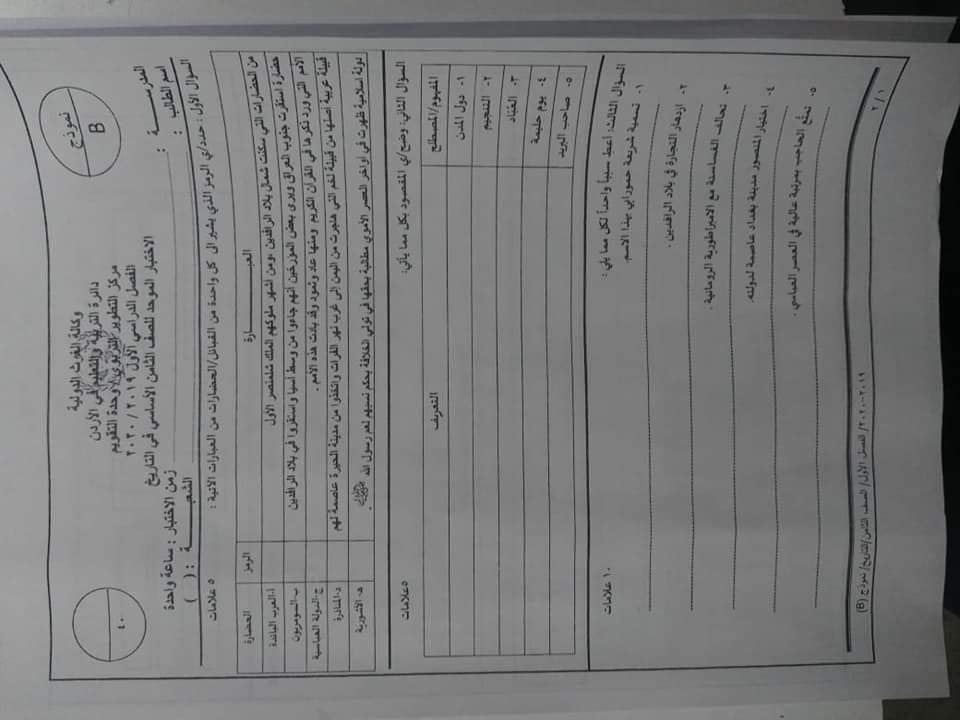 وكالة الغوث الدولية
دائرة التربية والتعليم في الأردن
مركز التطوير التربوي / وحدة التقويم
الفصل الدراسي الأول ٢٠١٩ / ٢٠٢٠
الاختبار الموحد للصف الثامن الأساسي في التاريخ
نموذج
B
٤٠
اسم الطالب : زمن الاختبار : ساعة واحدة
المدرسة : الشعبة : ( )
السؤال الأول : حدد/ي الرمز الذي يشير الى كل واحدة من القبائل/الحضارات من العبارات الاتية : ٥ علامات
العبارة الرمز الحضارة
من الحضارات التي سكنت شمال بلاد الرافدين ،ومن اشهر ملوكهم الملك شلمنصر الأول أ-العرب البائدة
حضارة استقرت جنوب العراق ويرى بعض المؤرخين أنهم جاءوا من وسط آسيا واستقروا في بلاد الرافدين ب-السومريون
الأمم التي ورد ذكرها في القرآن الكريم ومنها عاد وثمود وقد بادت هذه الأمم . ج-الدولة العباسية
قبيلة عربية أصلها من قبيلة لخم التي هاجرت من اليمن إلى غرب نهر الفرات واتخذوا من مدينة الحيرة عاصمة لهم د-المناذرة
دولة اسلامية ظهرت في أواخر العصر الأموي مطالبة بحقها في تولي الخلافة بحكم نسبهم لعم رسول الله ﷺ . هـ- الآشورية
السؤال الثاني: وضح/ي المقصود بكل مما يأتي: ٥علامات
المفهوم/المصطلح التعريف
١- دول المدن
٢- التنجيم
٣- القناد
٤- يوم حليمة
٥- صاحب البريد
السؤال الثالث: أعط سبباً واحداً لكل مما يأتي : ١٠ علامات
١- تسمية شريعة حمورابي بهذا الاسم.
٢- ازدهار التجارة في بلاد الرافدين .
٣- تحالف الغساسنة مع الامبراطورية الرومانية .
٤- اختيار المنصور مدينة بغداد عاصمة لدولته.
٥- تمتُّع الحاجب بمرتبة عالية في العصر العباسي .
٢/١ ٢٠١٩-٢٠٢٠/ الفصل الأول/ الصف الثامن/التاريخ/ نموذج (B)